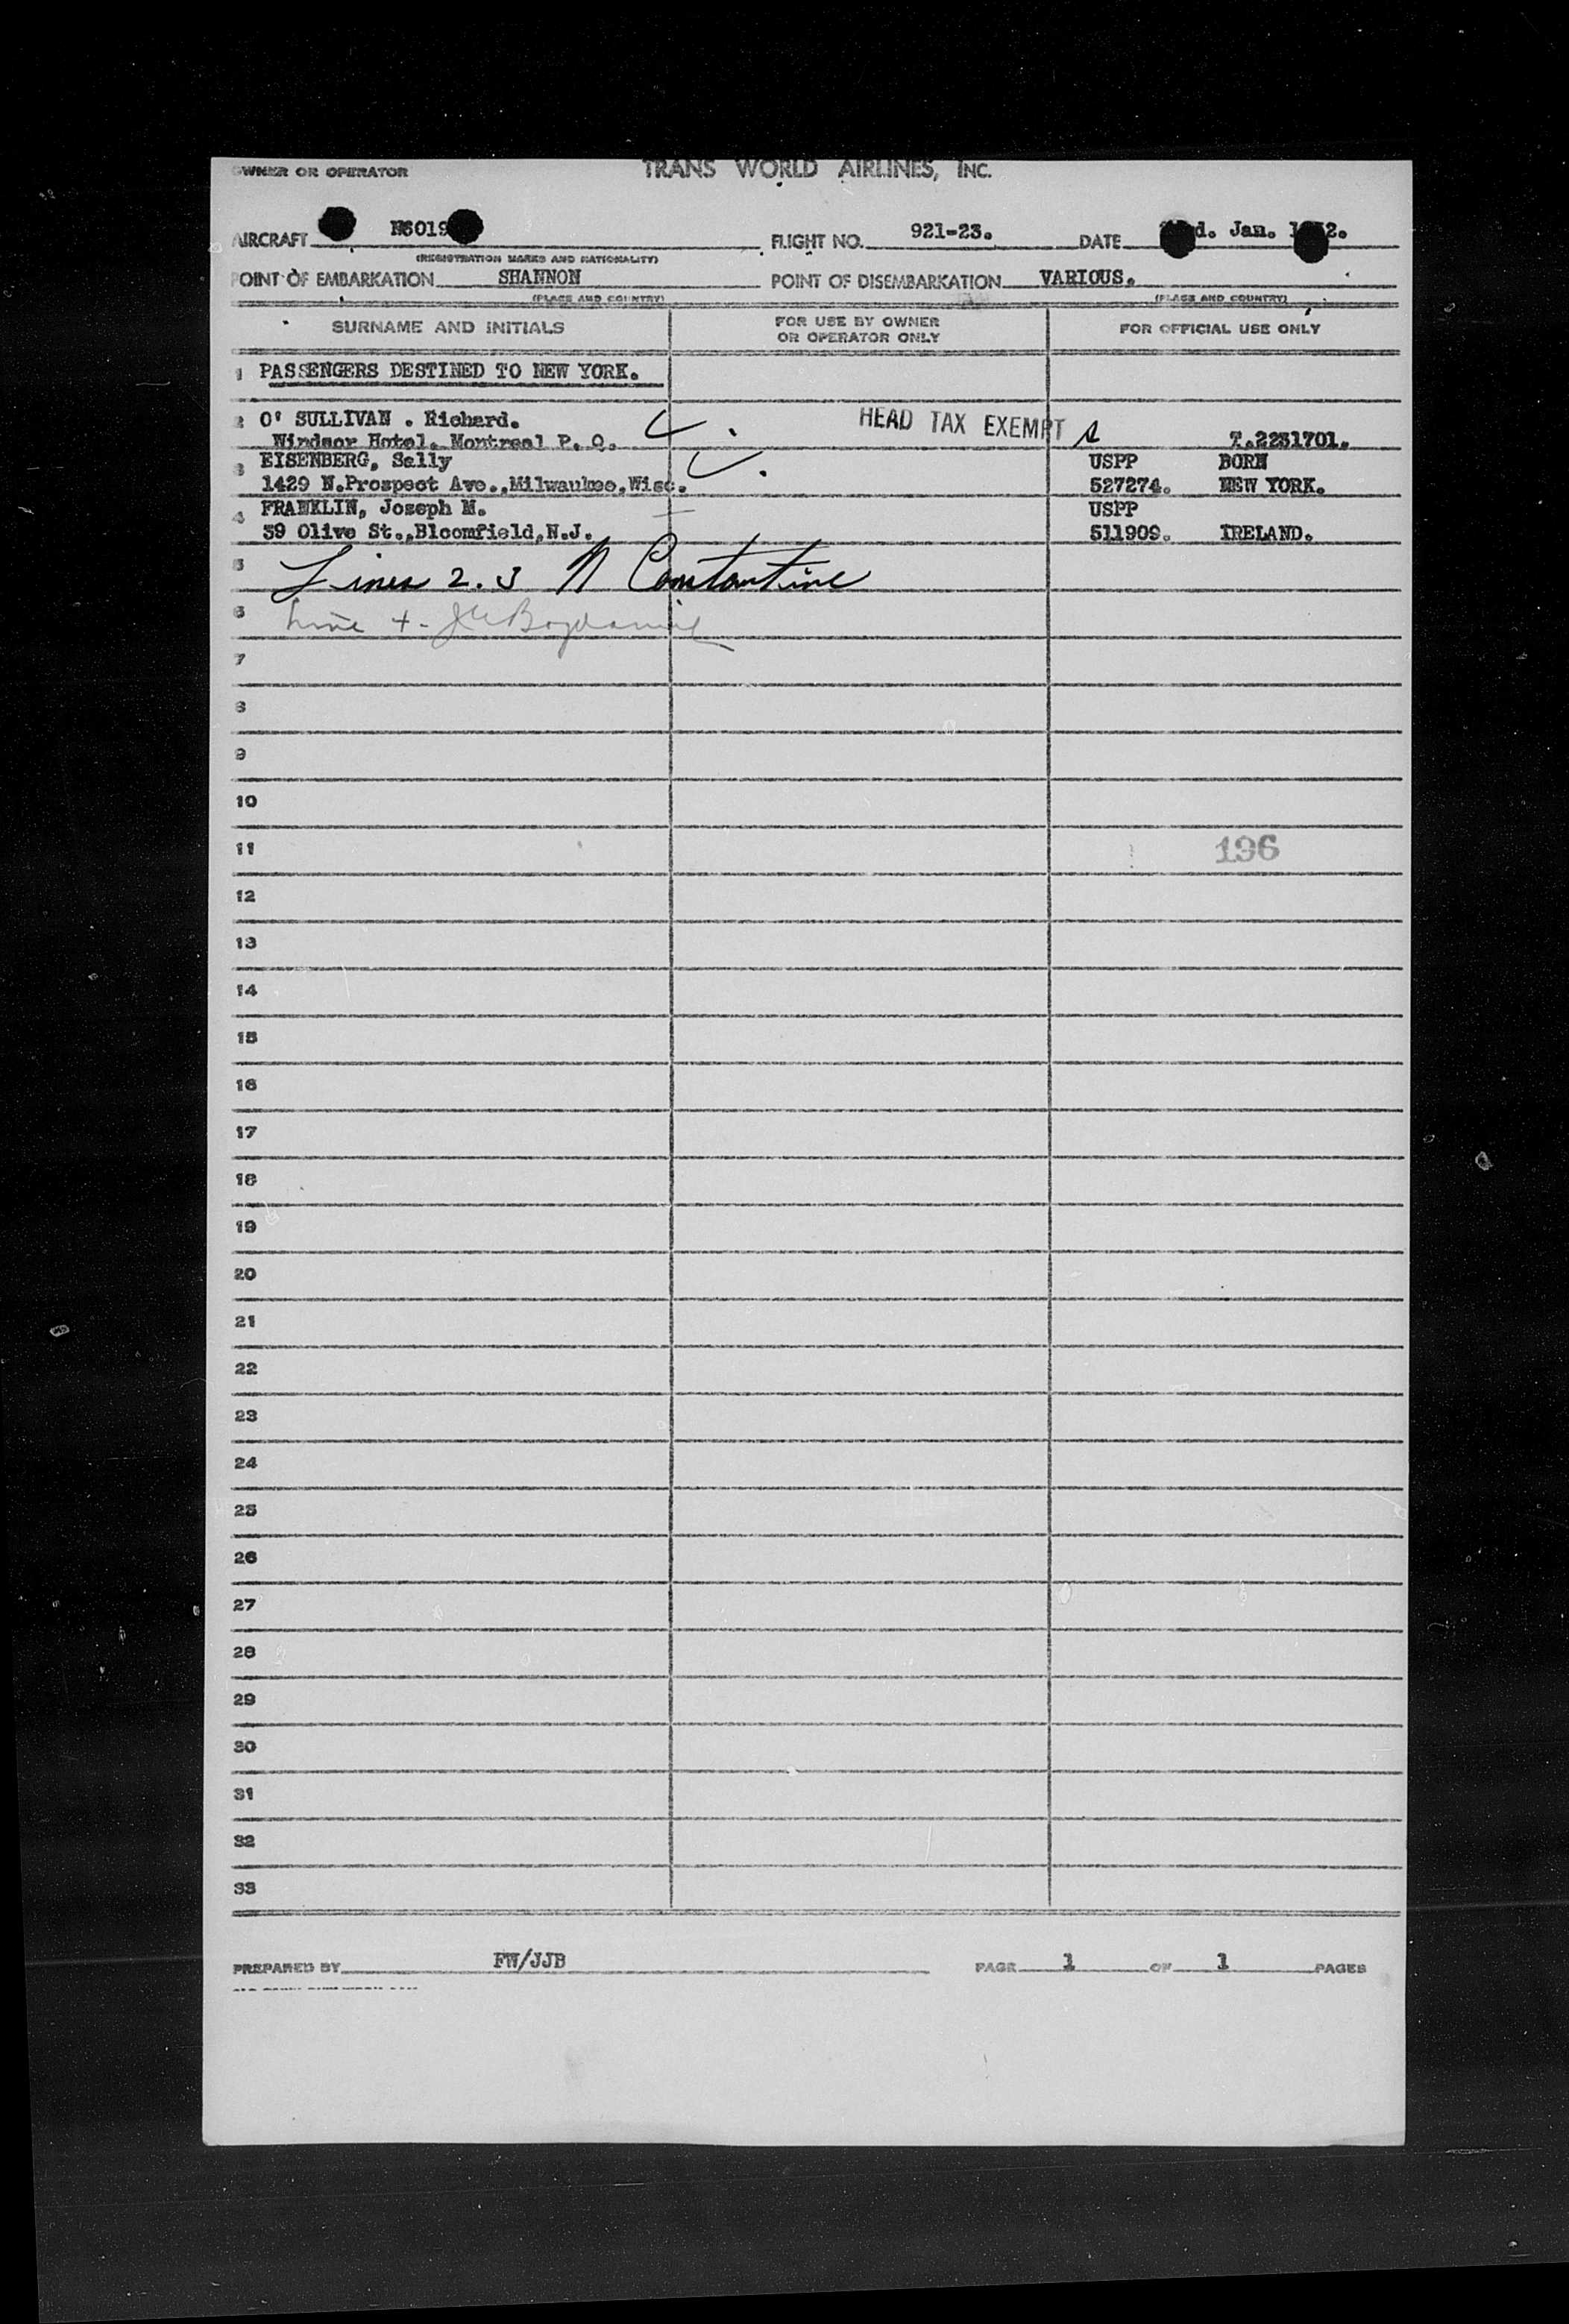 OWNER OR OPERATOR TRANS WORLD AIRLINES, INC.
AIRCRAFT N6019 FLIGHT NO. 921-23. DATE d. Jan. 1 2.
(REGISTRATION MARKS AND NATIONALITY)
POINT OF EMBARKATION SHANNON POINT OF DISEMBARKATION VARIOUS.
(PLACE AND COUNTRY) (PLACE AND COUNTRY)
SURNAME AND INITIALS FOR USE BY OWNER OR OPERATOR ONLY FOR OFFICIAL USE ONLY
1 PASSENGERS DESTINED TO NEW YORK.
2 O' SULLIVAN . Richard. HEAD TAX EXEMPT
Windsor Hotel, Montreal P. Q. 2231701.
3 EISENBERG, Sally USPP BORN
1429 N.Prospect Ave.,Milwaukee,Wisc. 527274. NEW YORK.
4 FRANKLIN, Joseph M. USPP
39 Olive St.,Bloomfield,N.J. 511909. IRELAND.
5 Lines 2. 3 N Constantine
6 Line 4-
7
8
9
10
11 196
12
13
14
15
16
17
18
19
20
21
22
23
24
25
26
27
28
29
30
31
32
33
PREPARED BY FW/JJB PAGE 1 OF 1 PAGES